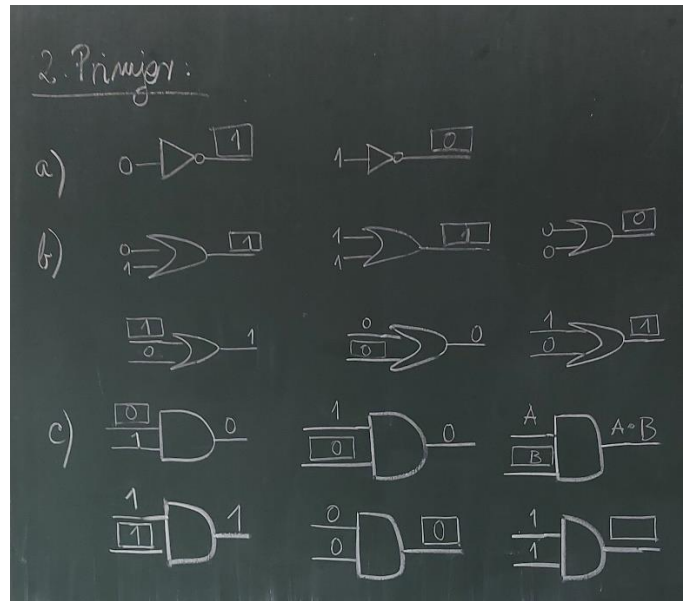 2. Primjer:
a) 0 1 1 0
b) 0 1 1 1 1 1 0 0 0
1 0 1 0 0 0 1 0 1
c) 0 1 0 1 0 0 A B A·B
1 1 1 0 0 0 1 1